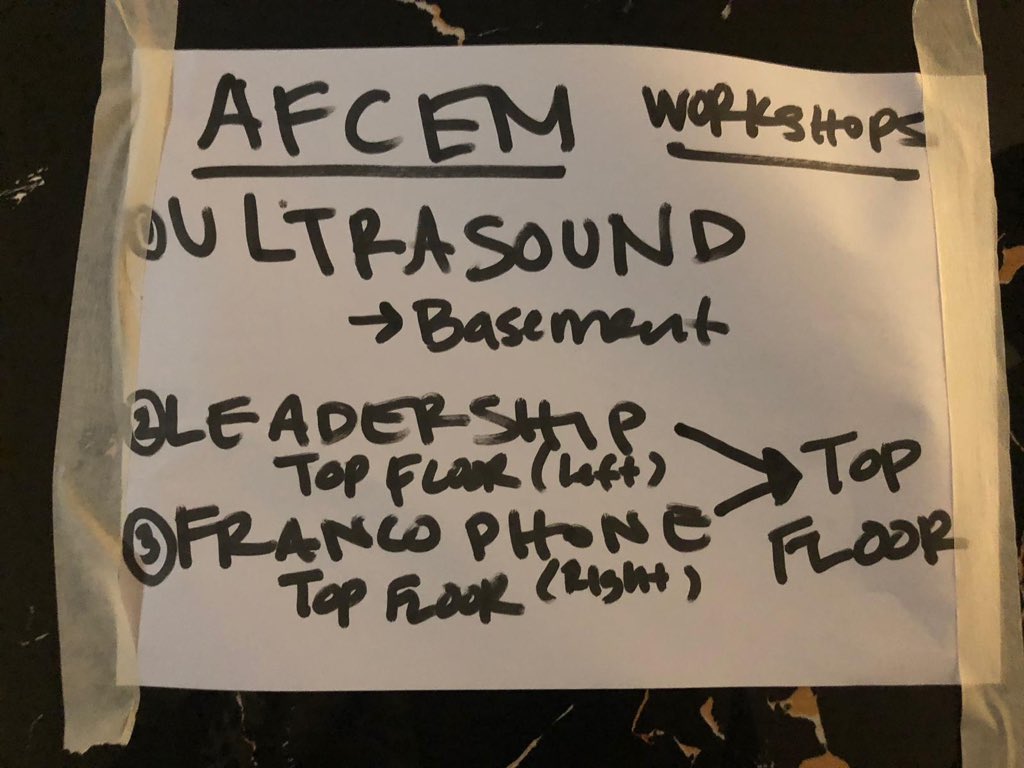 AFCEM WORKSHOPS
① ULTRASOUND
→ Basement
② LEADERSHIP
TOP FLOOR (Left)
③ FRANCOPHONE
TOP FLOOR (Right)
TOP
FLOOR